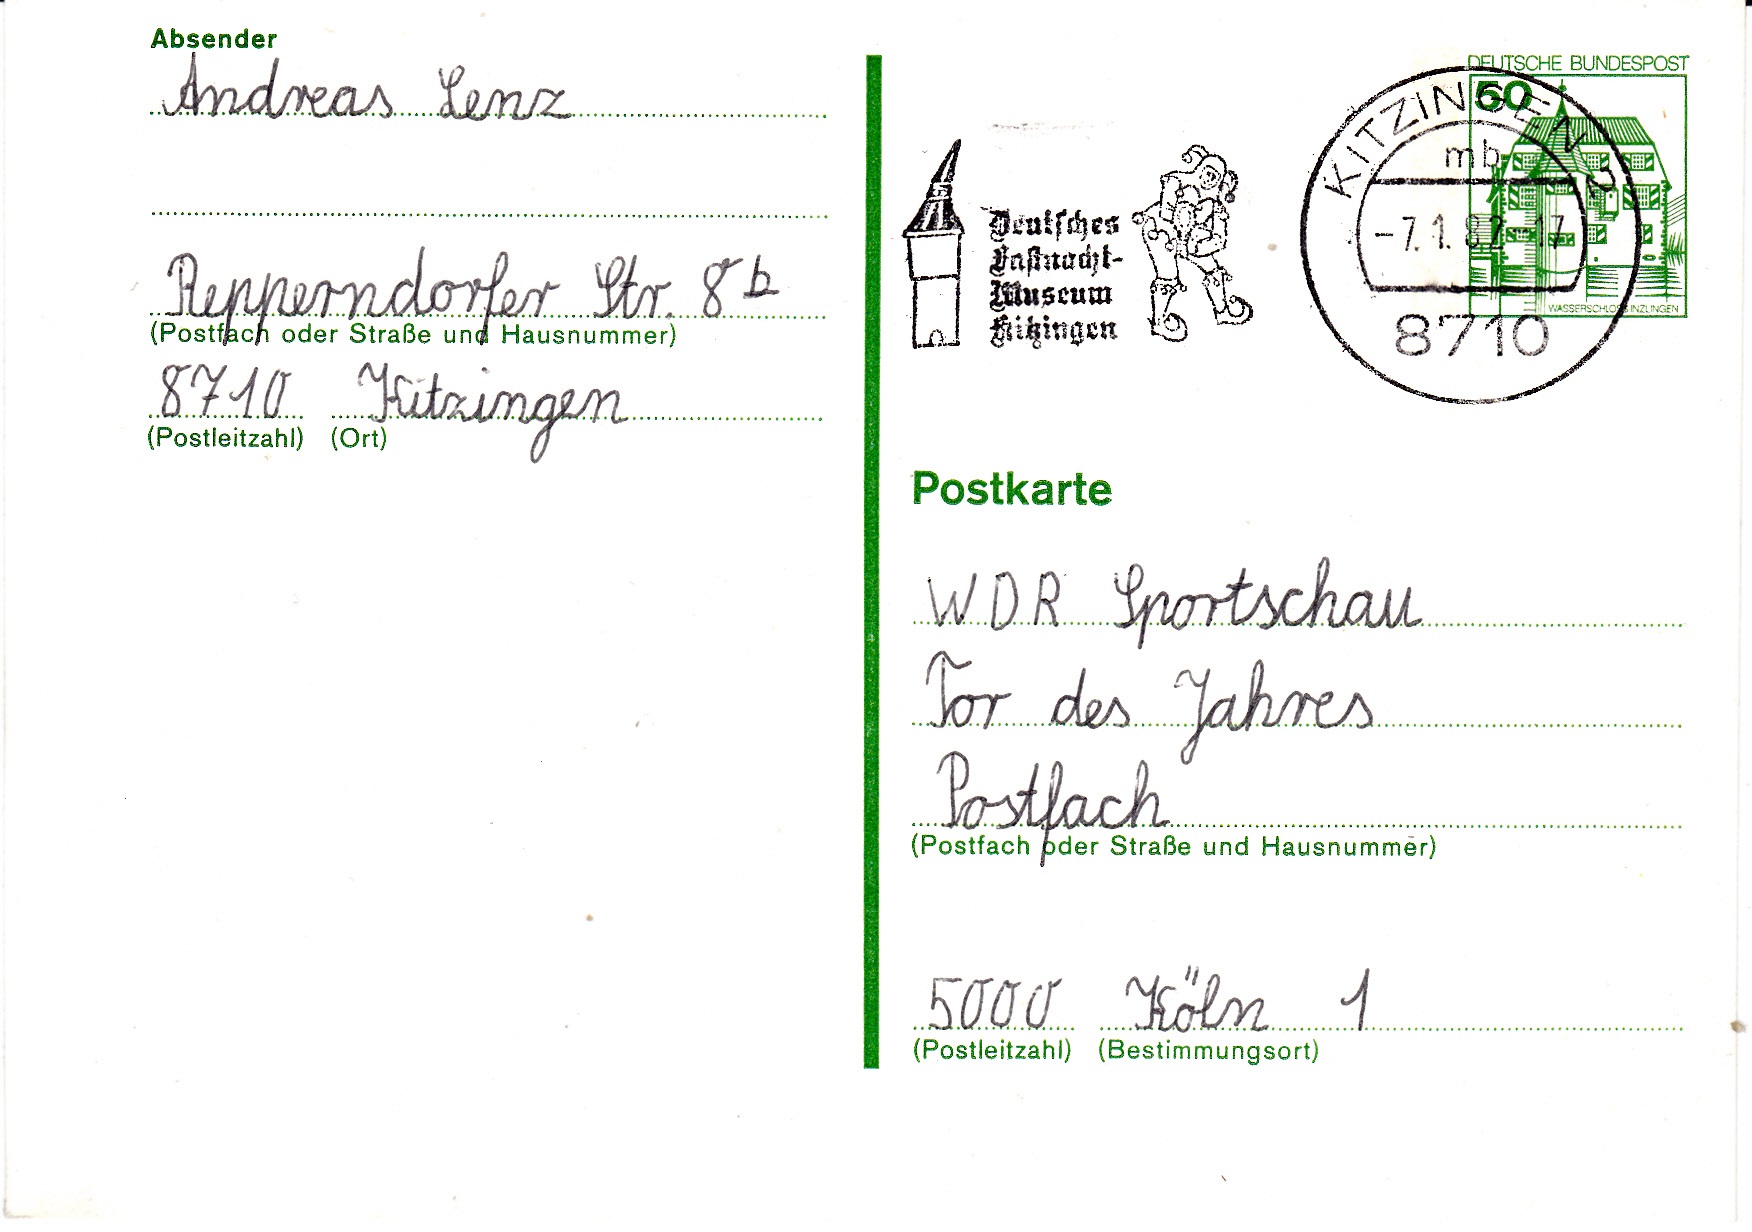 Absender
Andreas Lenz
Repperndorfer Str. 8 b
(Postfach oder Straße und Hausnummer)
8710 Kitzingen
(Postleitzahl) (Ort)
Deutsches
Fastnacht-
Museum
Kitzingen
DEUTSCHE BUNDESPOST
60
WASSERSCHLOSS INZLINGEN
KITZINGEN 2
mb
-7.1.82-17
8710
Postkarte
WDR Sportschau
Tor des Jahres
Postfach
(Postfach oder Straße und Hausnummer)
5000 Köln 1
(Postleitzahl) (Bestimmungsort)